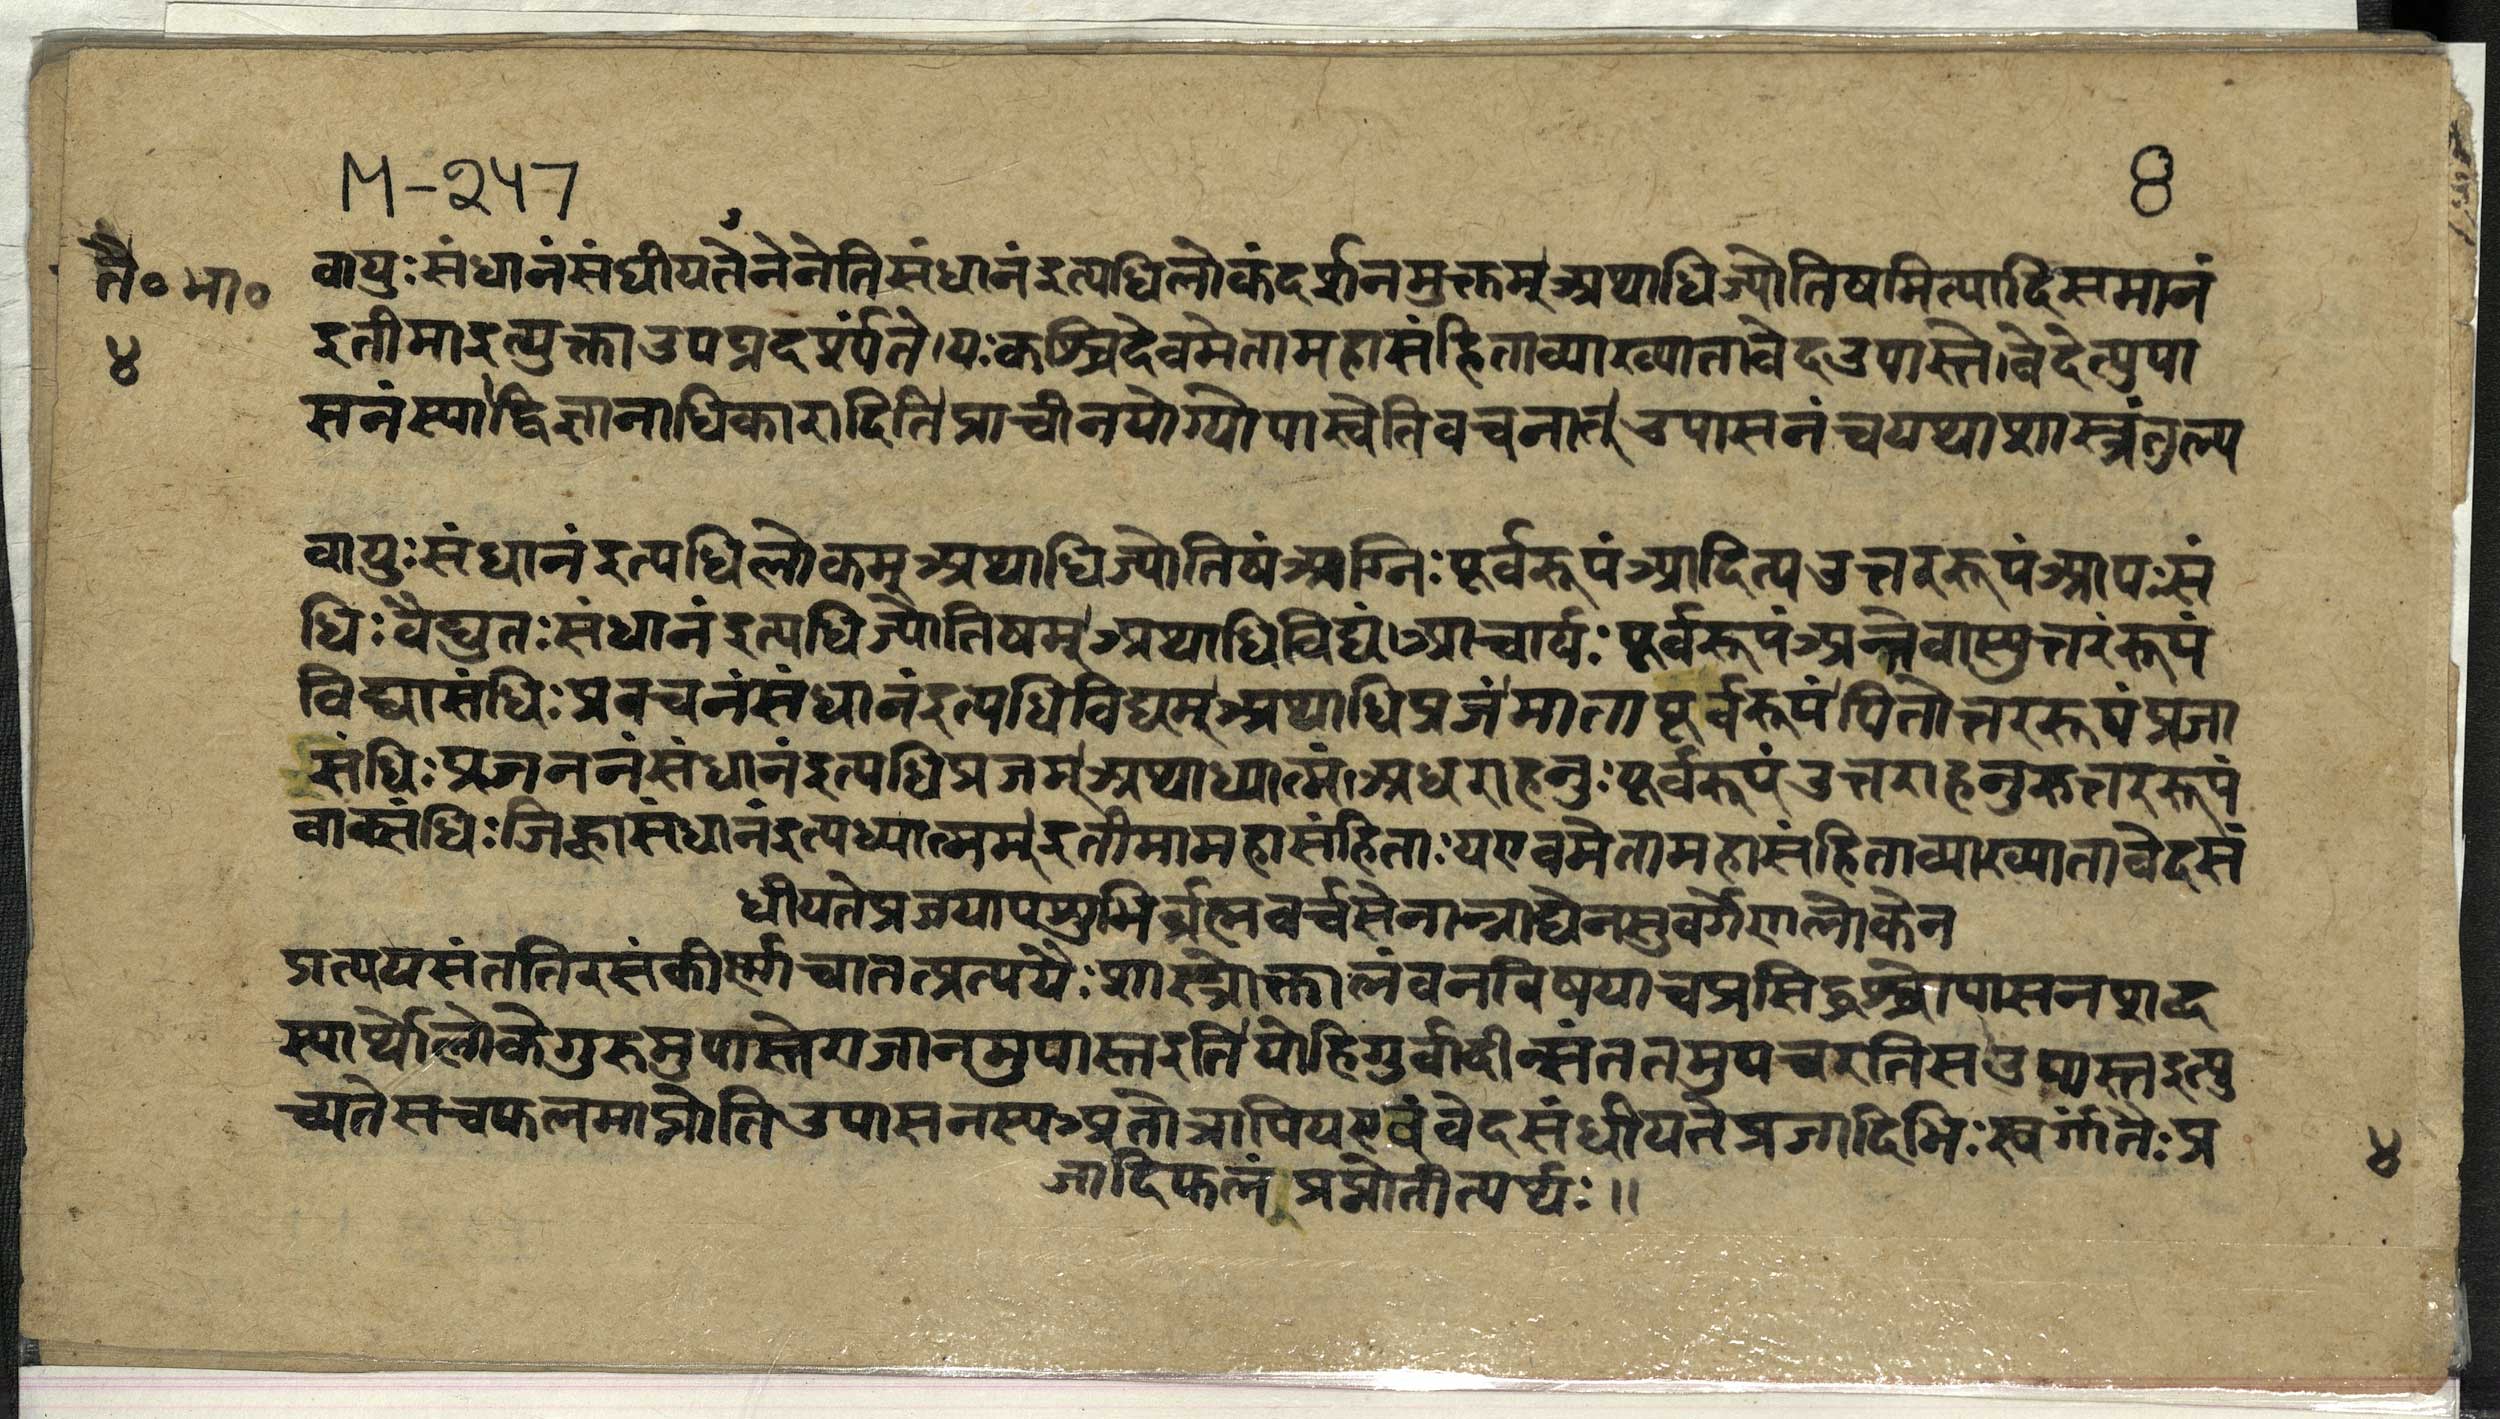 M-247
8
तै॰भा॰
४
वायुःसंधानंसंधीयतेनेनेतिसंधानंइत्यधिलोकंदर्शनमुक्तम्अथाधिज्यौतिषमित्यादिसमानं
इतीमाइत्युक्ताउपप्रदर्श्यंते।यःकश्चिदेवमेतामहासंहिताव्याख्यातावेदउपास्ते।वेदेत्युपा
सनंस्याद्विज्ञानाधिकारादितिप्राचीनयोग्योपास्वेतिवचनात्उपासनंचयथाशास्त्रंतुल्य
वायुःसंधानंइत्यधिलोकम्अथाधिज्यौतिषंअग्निःपूर्वरूपंआदित्यउत्तररूपंआपःसं
धिःवैद्युतःसंधानंइत्यधिज्यौतिषम्अथाधिविद्यंआचार्यःपूर्वरूपंअन्तेवास्युत्तरंरूपं
विद्यासंधिःप्रवचनंसंधानंइत्यधिविद्यम्अथाधिप्रजंमातापूर्वरूपंपितोत्तररूपंप्रजा
संधिःप्रजननंसंधानंइत्यधिप्रजम्अथाध्यात्मंअधराहनुःपूर्वरूपंउत्तराहनुरुत्तररूपं
वाक्संधिःजिह्वासंधानंइत्यध्यात्मम्इतीमामहासंहिताःयएवमेतामहासंहिताव्याख्यातावेदसं
धीयतेप्रजयापशुभिर्ब्रह्मवर्चसेनान्नाद्येनसुवर्गेणलोकेन
प्रत्ययसंततिरसंकीर्णाचातत्प्रत्ययैःशास्त्रोक्तालंवनविषयाचप्रसिद्धश्चोपासनशद्ब
स्यार्थोलोकेगुरुमुपास्तेराजानमुपास्तइतियोहिगुर्वादीन्संततमुपचरतिसउपास्तइत्यु
च्यतेसचफलमाप्नोतिउपासनस्यअतोत्रापियएवंवेदसंधीयतेप्रजादिभिःस्वर्गांतैःप्र
४
जादिफलंप्राप्नोतीत्यर्थः॥